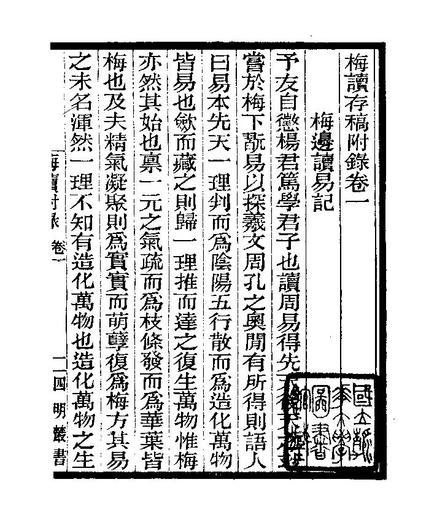 梅讀存稿附錄卷一
梅邊讀易記
予友自懲楊君篤學君子也讀周易得先天
嘗於梅下翫易以探羲文周孔之奧閒有所得則語人
曰易本先天一理判而爲陰陽五行散而爲造化萬物
皆易也斂而藏之則歸一理推而達之復生萬物惟梅
亦然其始也稟一元之氣疏而爲枝條發而爲華葉皆
梅也及夫精氣凝聚則爲實實而萌孽復爲梅方其易
之未名渾然一理不知有造化萬物也造化萬物之生
梅讀附錄 卷一 一 四明叢書